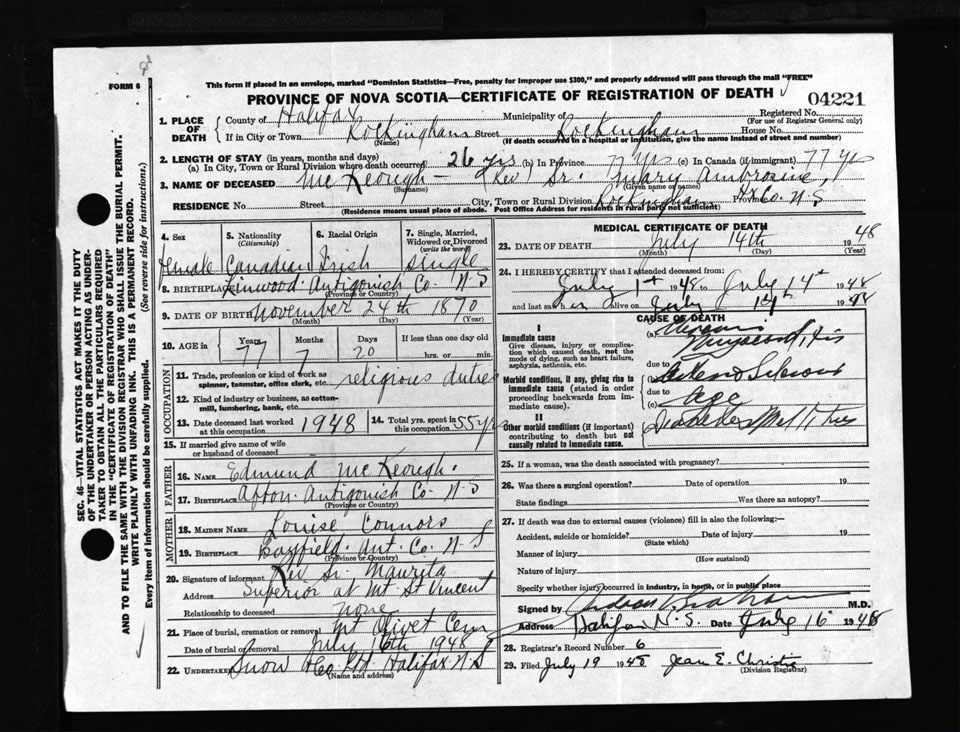 FORM 6
This form if placed in an envelope, marked "Dominion Statistics—Free, penalty for improper use $300," and properly addressed will pass through the mail "FREE"
PROVINCE OF NOVA SCOTIA—CERTIFICATE OF REGISTRATION OF DEATH
04221
1. PLACE OF DEATH
County of Halifax
Municipality of
Registered No.
(For use of Registrar General only)
If in City or Town Rockingham Street Rockingham House No.
(Name) (If death occurred in a hospital or institution, give the name instead of street and number)
2. LENGTH OF STAY (in years, months and days)
(a) In City, Town or Rural Division where death occurred 26 yrs (b) In Province 77 yrs (c) In Canada (if immigrant) 77 yrs
3. NAME OF DECEASED McKeough — (Rev) Sr. Mary Ambrosine
(Surname) (Given name or names)
RESIDENCE No. Street City, Town or Rural Division Rockingham Province Hx Co. N-S
(Residence means usual place of abode. Post Office Address for residents in rural parts not sufficient)
4. Sex
female
5. Nationality
(Citizenship)
Canadian
6. Racial Origin
Irish
7. Single, Married, Widowed or Divorced
(write the word)
single
8. BIRTHPLACE Linwood Antigonish Co. N-S
(Province or Country)
9. DATE OF BIRTH November 24th 1870
(Month) (Day) (Year)
10. AGE in
Years 77
Months 7
Days 20
If less than one day old
hrs. or min.
OCCUPATION
11. Trade, profession or kind of work as spinner, teamster, office clerk, etc. religious duties
12. Kind of industry or business, as cotton-mill, lumbering, bank, etc.
13. Date deceased last worked at this occupation 1948
14. Total yrs. spent in this occupation 55 yrs
15. If married give name of wife or husband of deceased
FATHER
16. Name Edmund McKeough
17. Birthplace Afton Antigonish Co. N-S
(Province or Country)
MOTHER
18. MAIDEN NAME Louise Connors
19. BIRTHPLACE Bayfield Ant. Co. N-S
(Province or Country)
20. Signature of informant Rev Sr. Maurita
Address Superior at Mt St Vincent
Relationship to deceased none
21. Place of burial, cremation or removal Mt Olivet Cem
Date of burial or removal July 16th 1948
22. UNDERTAKER Snow & Co Ltd. Halifax N-S
(Name and address)
MEDICAL CERTIFICATE OF DEATH
23. DATE OF DEATH July 14th 1948
(Month) (Day) (Year)
24. I HEREBY CERTIFY that I attended deceased from:
July 1st 1948 to July 14th 1948
and last saw her alive on July 14th 1948
CAUSE OF DEATH
I
Give disease, injury or complication which caused death, not the mode of dying, such as heart failure, asphyxia, asthenia, etc.
(a) Chronic Myocarditis
due to
Morbid conditions, if any, giving rise to immediate cause (stated in order proceeding backwards from immediate cause).
(b) Arterio Sclerosis
due to
(c) Age
II
Other morbid conditions (if important) contributing to death but not causally related to immediate cause.
Diabetes Mellitus
25. If a woman, was the death associated with pregnancy?
26. Was there a surgical operation? Date of operation 19
State findings Was there an autopsy?
27. If death was due to external causes (violence) fill in also the following:—
Accident, suicide or homicide? Date of injury 19
(State which)
Manner of injury
(How sustained)
Nature of injury
Specify whether injury occurred in industry, in home, or in public place
Signed by M.D.
Address Halifax N.S. Date July 16 1948
28. Registrar's Record Number 6
29. Filed July 19 1948 Jean E. Christie
(Division Registrar)
SEC. 46—VITAL STATISTICS ACT MAKES IT THE DUTY
OF THE UNDERTAKER OR PERSON ACTING AS UNDER-
TAKER TO OBTAIN ALL THE PARTICULARS REQUIRED
IN THE "CERTIFICATE OF REGISTRATION OF DEATH"
AND TO FILE THE SAME WITH THE DIVISION REGISTRAR WHO SHALL ISSUE THE BURIAL PERMIT.
WRITE PLAINLY WITH UNFADING INK. THIS IS A PERMANENT RECORD.
Every item of information should be carefully supplied. (See reverse side for instructions.)